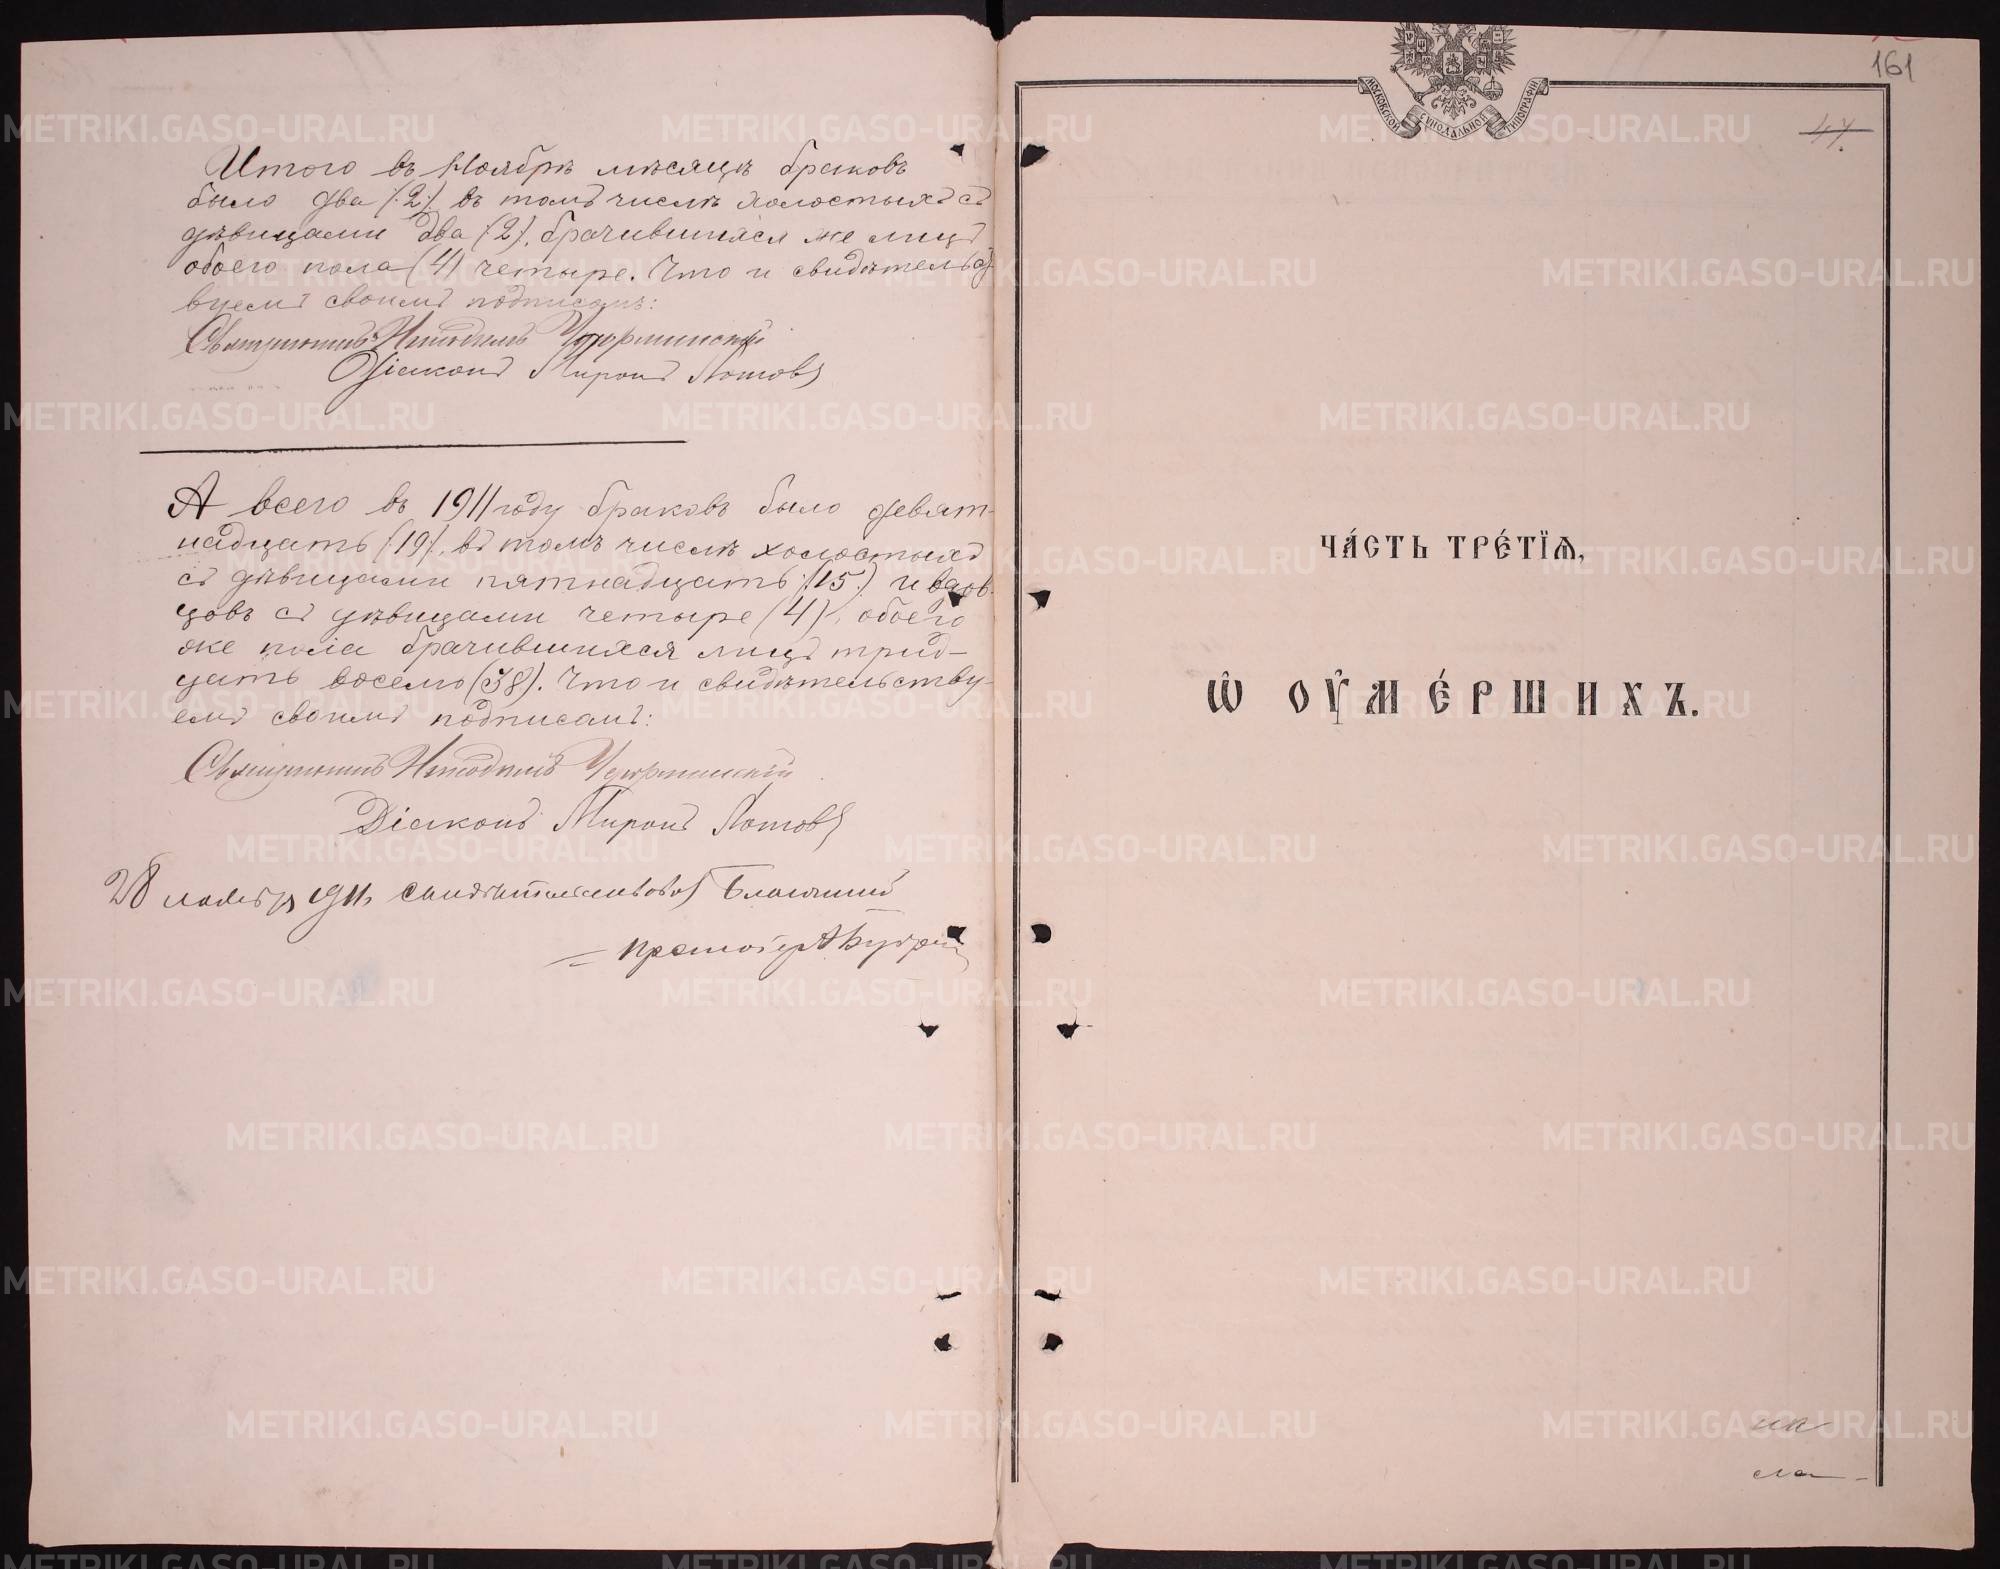 Итого въ Ноябрѣ мѣсяцѣ браковъ
было два (2), въ томъ числѣ холостыхъ съ
дѣвицами два (2), брачившихся же лицъ
обоего пола (4) четыре. Что и свидѣтельст-
вуемъ своимъ подписомъ:
Священникъ Никодимъ
Діаконъ Миронъ Лотовъ
А всего въ 1911 году браковъ было девят-
надцать (19), въ томъ числѣ холостыхъ
съ дѣвицами пятнадцать (15) и вдов-
цовъ съ дѣвицами четыре (4), обоего
же пола брачившихся лицъ трид-
цать восемь (38). Что и свидѣтельству-
емъ своимъ подписомъ:
Священникъ Никодимъ
Діаконъ Миронъ Лотовъ
28 1911 свидѣтельствовалъ Благочинный
161
47.
МОСКОВСКОЙ СѴНОДАЛЬНОЙ ТИПОГРАФІИ
ЧА́СТЬ ТРЕ́ТЇѦ,
Ѡ҆ ОУ҆МЕ́РШИХЪ.
METRIKI.GASO-URAL.RU